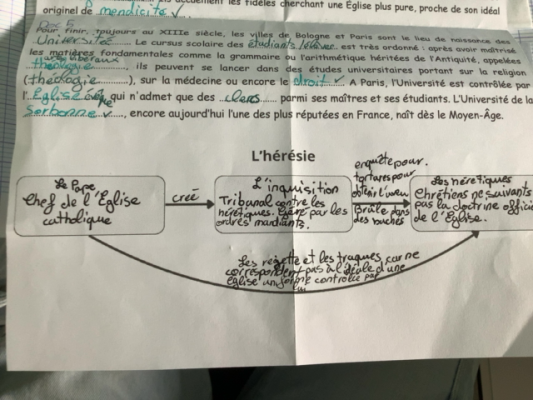 accueillent les fidèles cherchant une Église plus pure, proche de son idéal
originel de mendicité
Doc 5
Pour finir, toujours au XIIIe siècle, les villes de Bologne et Paris sont le lieu de naissance des
Universités. Le cursus scolaire des étudiants/élèves est très ordonné : après avoir maîtrisé
les matières fondamentales comme la grammaire ou l'arithmétique héritées de l'Antiquité, appelées
arts libéraux
théologie, ils peuvent se lancer dans des études universitaires portant sur la religion
(théologie), sur la médecine ou encore le droit. A Paris, l'Université est contrôlée par
l'Église évêque qui n'admet que des clercs parmi ses maîtres et ses étudiants. L'Université de la
Sorbonne, encore aujourd'hui l'une des plus réputées en France, naît dès le Moyen-Âge.
L'hérésie
Le Pape
Chef de l'Église
catholique
creé
L'inquisition
Tribunal contre les
hérétiques. par les
ordres mendiants.
enquête pour.
tortures pour
obtenir l'aveu
Brûle dans
des
Les hérétiques
Chrétiens ne suivants
pas la doctrine offici
de l'Église.
Les rejette et les traques car ne
correspondent pas à l'idéale d'une
église uniforme controlée par
lui